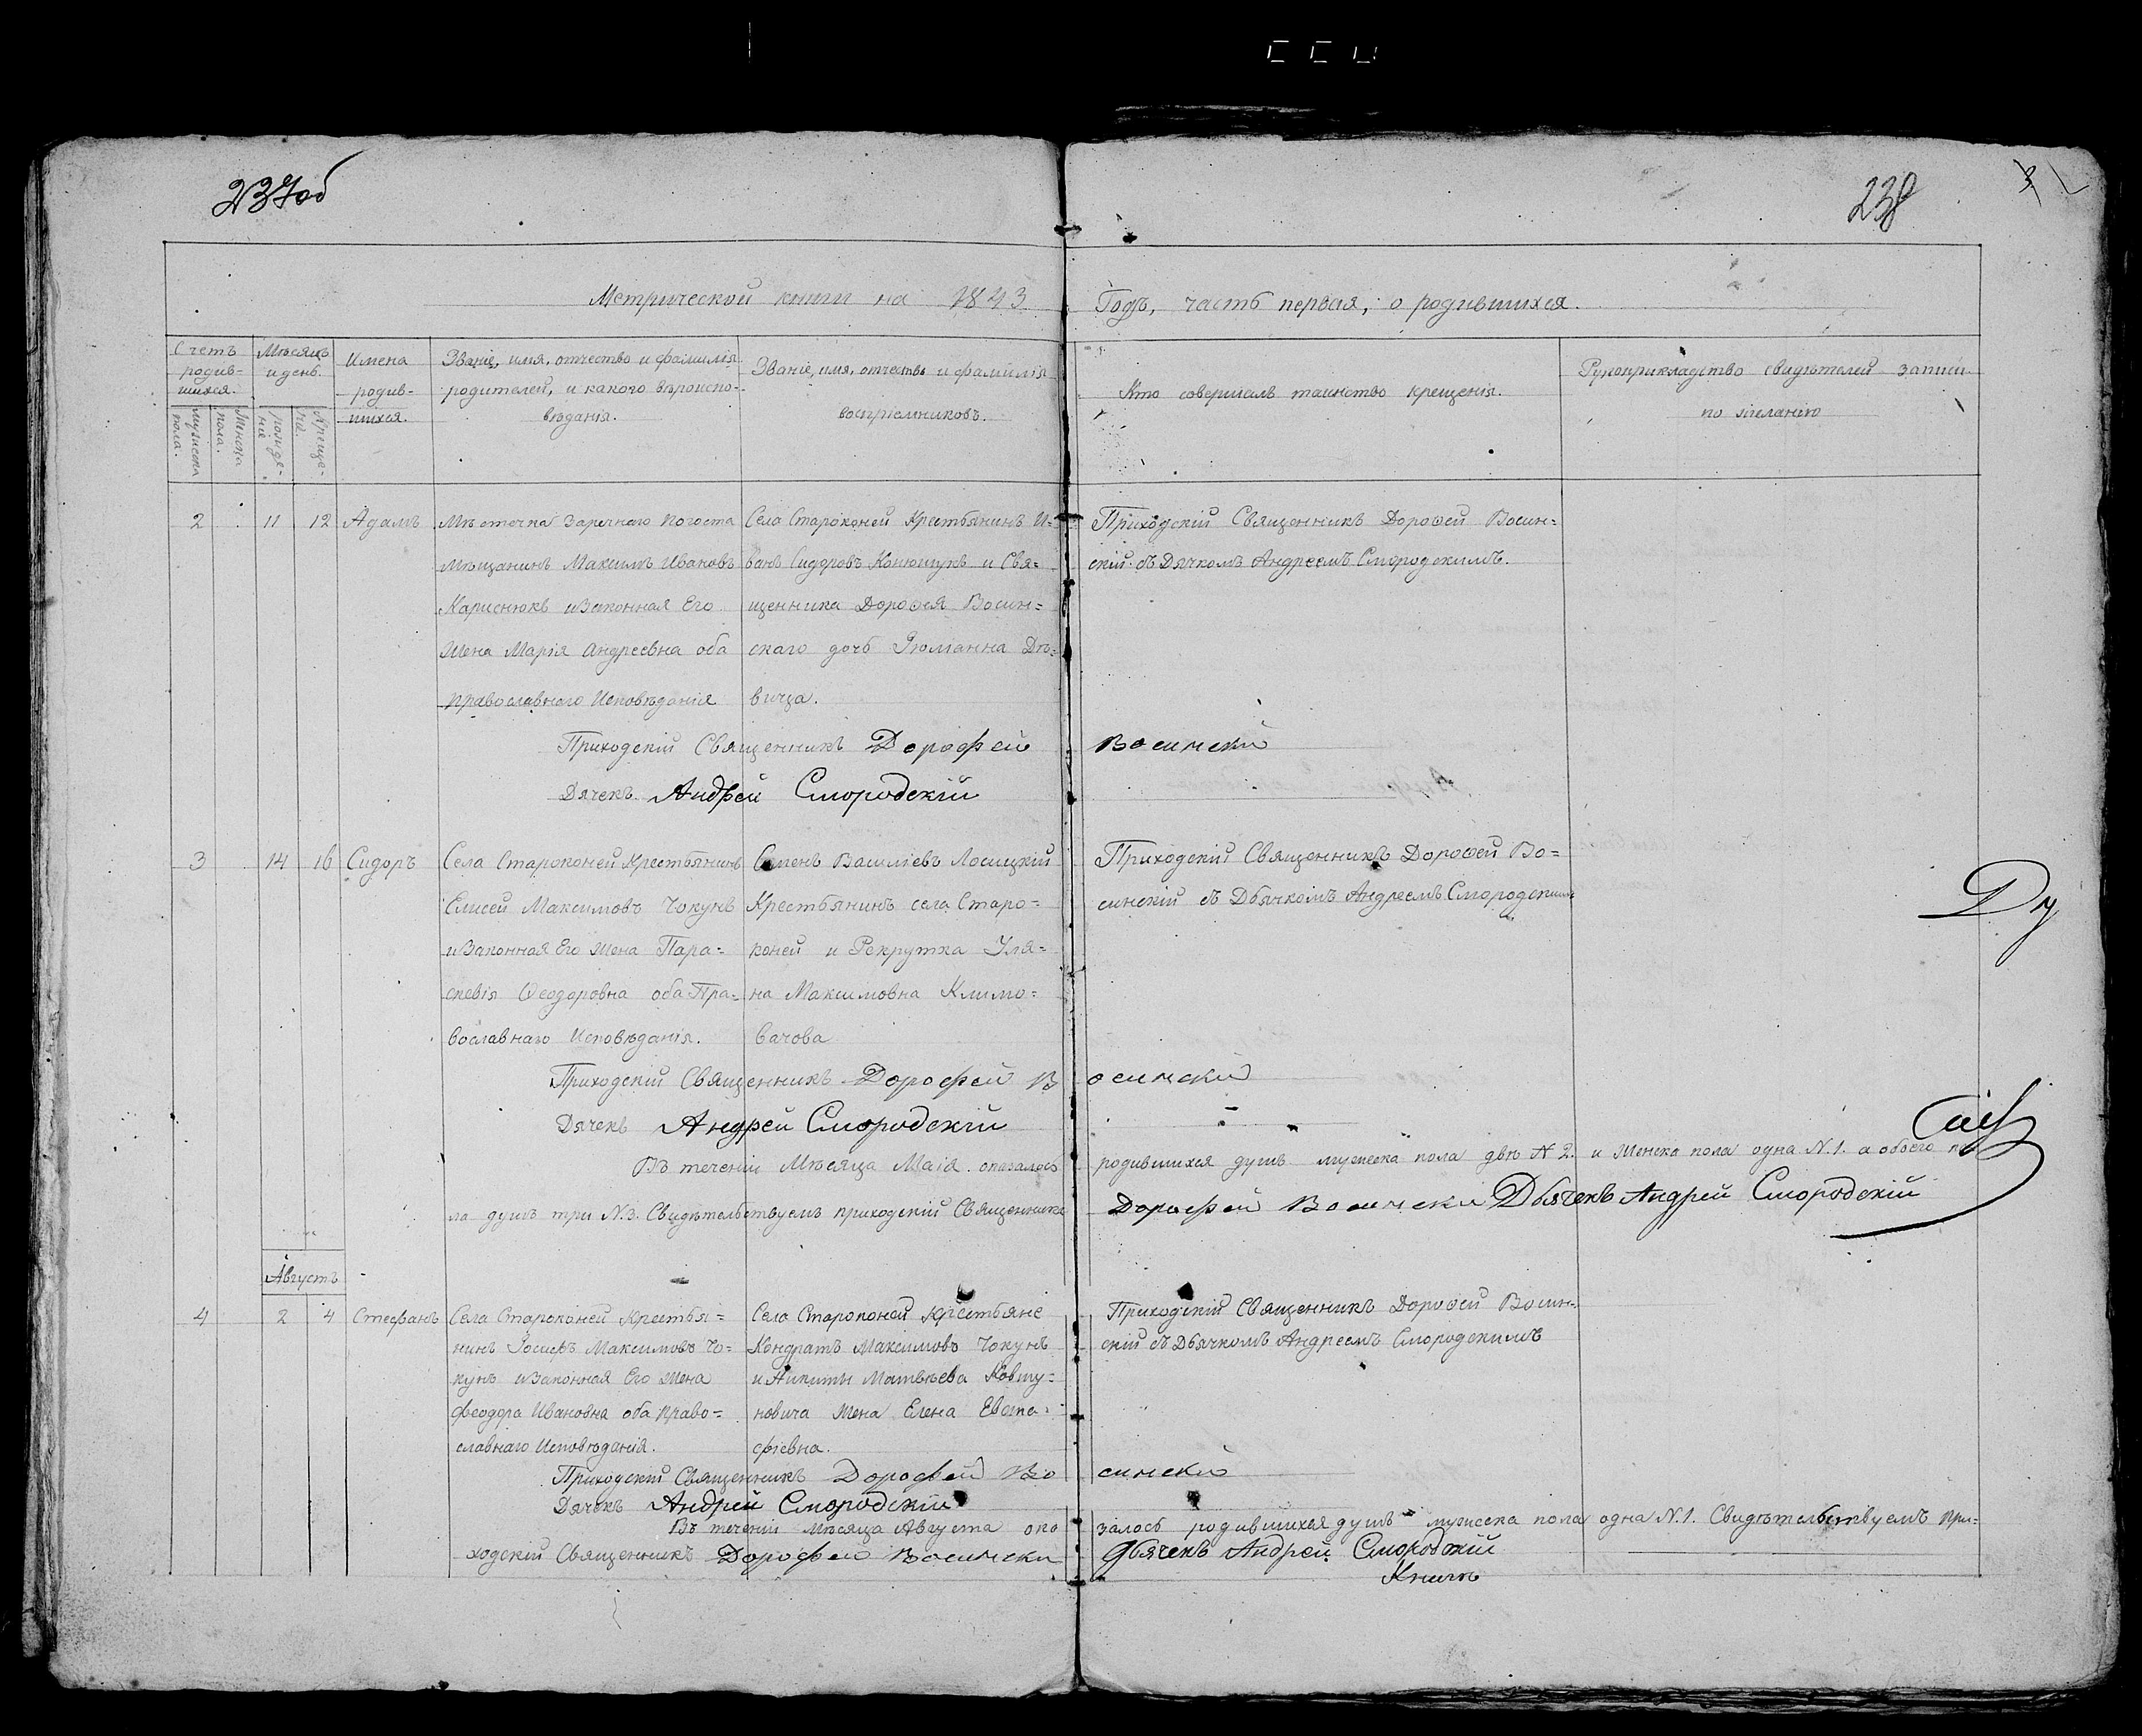 237об
238
Метрической книги на 1843 Годъ, часть первая, о родившихся.
Счетъ родив-
шихся.
мужеска пола.
Женска пола.
Мѣсяцъ и день.
рожде-
нiе
Креще-
нiя.
Имена
родив-
шихся.
Званiе, имя, отчество и фамилiя
родителей, и какого вѣроиспо-
вѣданiя.
Званiе, имя, отчество и фамилiя
воспрiемниковъ.
Кто совершалъ таинство крещенiя.
Рукоприкладство свидѣтелей записи
по желанiю
2 11 12 Адамъ
Мѣстечка Заречного Погоста
Мѣщанинъ Максимъ Ивановъ
Кариснюкъ и Законная Его
Жена Марiя Андреевна оба
Православнаго Исповѣданiя
Села Староконей Крестьянинъ И-
ванъ Сидоровъ Конюшукъ и Свя=
щенника Дороѳея Восин=
скаго дочь Юлианна Дѣ=
вица.
Приходскiй Священникъ Дороѳей Восин=
скiй съ Дячкомъ Андреемъ Смородскимъ.
Приходскiй Священникъ Дорофей Восински
Дячекъ Андрей Смородскiй
3 14 16 Сидоръ
Села Староконей Крестьянинъ
Елисей Максимовъ Чокунъ
и Законная Его Жена Пара=
скевiя Ѳеодоровна оба Пра=
вославнаго Исповѣданiя.
Семенъ Василiевъ Лосицкiй
Крестьянинъ села Старо=
коней и Рекрутка Уля=
на Максимовна Климо=
вачова
Приходскiй Священникъ Дороѳей Во=
синскiй съ Дьячкомъ Андреемъ Смородскимъ
Ду
Приходскiй Священникъ Дорофей Восински
Дячекъ Андрей Смородскiй
Въ теченiи Мѣсяца Маiя оказалось родившихся душъ мужеска пола двѣ N 2. и Женска пола одна N. 1. а обоего по
ла душъ три N 3. Свидѣтельствуемъ приходскiй Священникъ Дорофей Восински Дьячекъ Андрей Смородскiй
Августъ
4 2 4 Стефанъ
Села Староконей Крестья=
нинъ Iосифъ Максимовъ Чо=
кунъ и Законная Его Жена
Феодора Ивановна оба право=
славнаго Исповѣданiя.
Села Староконей Крестьяне
Кондратъ Максимовъ Чокунъ
и Никиты Матвѣева Ковту=
новича Жена Елена Евста=
фiевна.
Приходскiй Священникъ Дороѳей Восин-
скiй съ Дьячкомъ Андреемъ Смородскимъ
Приходскiй Священникъ Дорофей Восински
Дячекъ Андрей Смородскiй
Въ теченiи Мѣсяца Августа оказалось родившихся душъ мужеска пола одна N. 1. Свидѣтельствуемъ При-
ходскiй Священникъ Дорофей Восински Дьячекъ Андрей Смородскiй